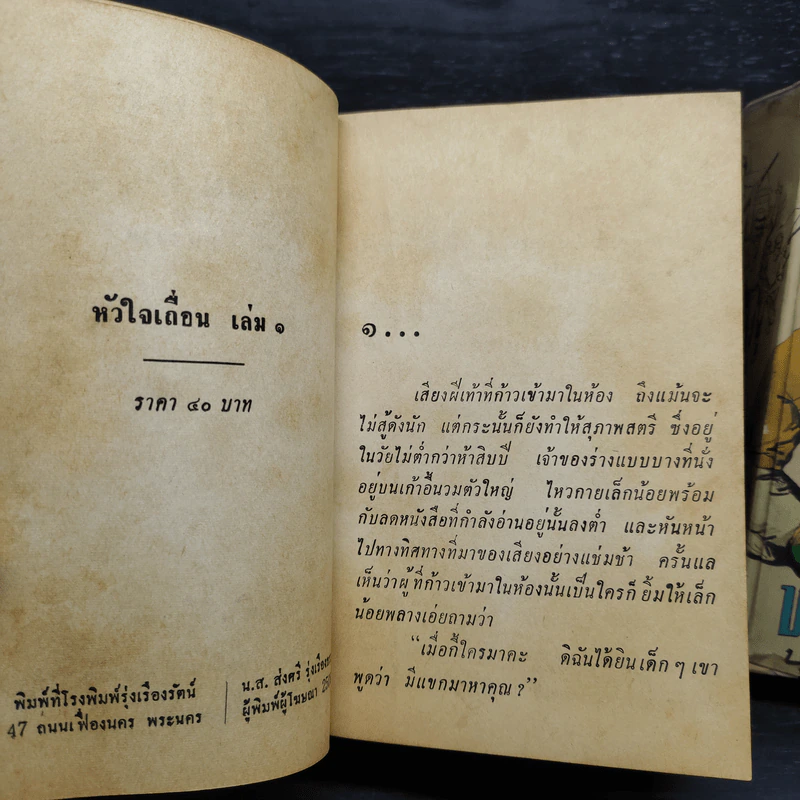 หัวใจเถื่อน เล่ม ๑
ราคา ๔๐ บาท
พิมพ์ที่โรงพิมพ์รุ่งเรืองรัตน์
47 ถนนเฟื่องนคร พระนคร
น.ส. ส่งศรี
ผู้พิมพ์ผู้โฆษณา
๑...
เสียงฝีเท้าที่ก้าวเข้ามาในห้อง ถึงแม้นจะ
ไม่สู้ดังนัก แต่กระนั้นก็ยังทำให้สุภาพสตรี ซึ่งอยู่
ในวัยไม่ต่ำกว่าห้าสิบปี เจ้าของร่างแบบบางที่นั่ง
อยู่บนเก้าอี้นวมตัวใหญ่ ไหวกายเล็กน้อยพร้อม
กับลดหนังสือที่กำลังอ่านอยู่นั้นลงต่ำ และหันหน้า
ไปทางทิศทางที่มาของเสียงอย่างแช่มช้า ครั้นแล
เห็นว่าผู้ที่ก้าวเข้ามาในห้องนั้นเป็นใครก็ ยิ้มให้เล็ก
น้อยพลางเอ่ยถามว่า
“เมื่อกี้ใครมาคะ ดิฉันได้ยินเด็ก ๆ เขา
พูดว่า มีแขกมาหาคุณ ?”